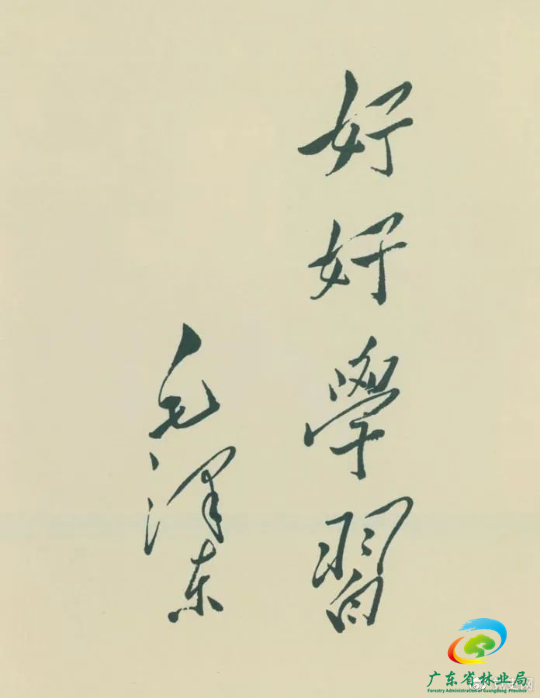 好好學習
毛澤东
广东省林业局
Forestry Administration of Guangdong Province